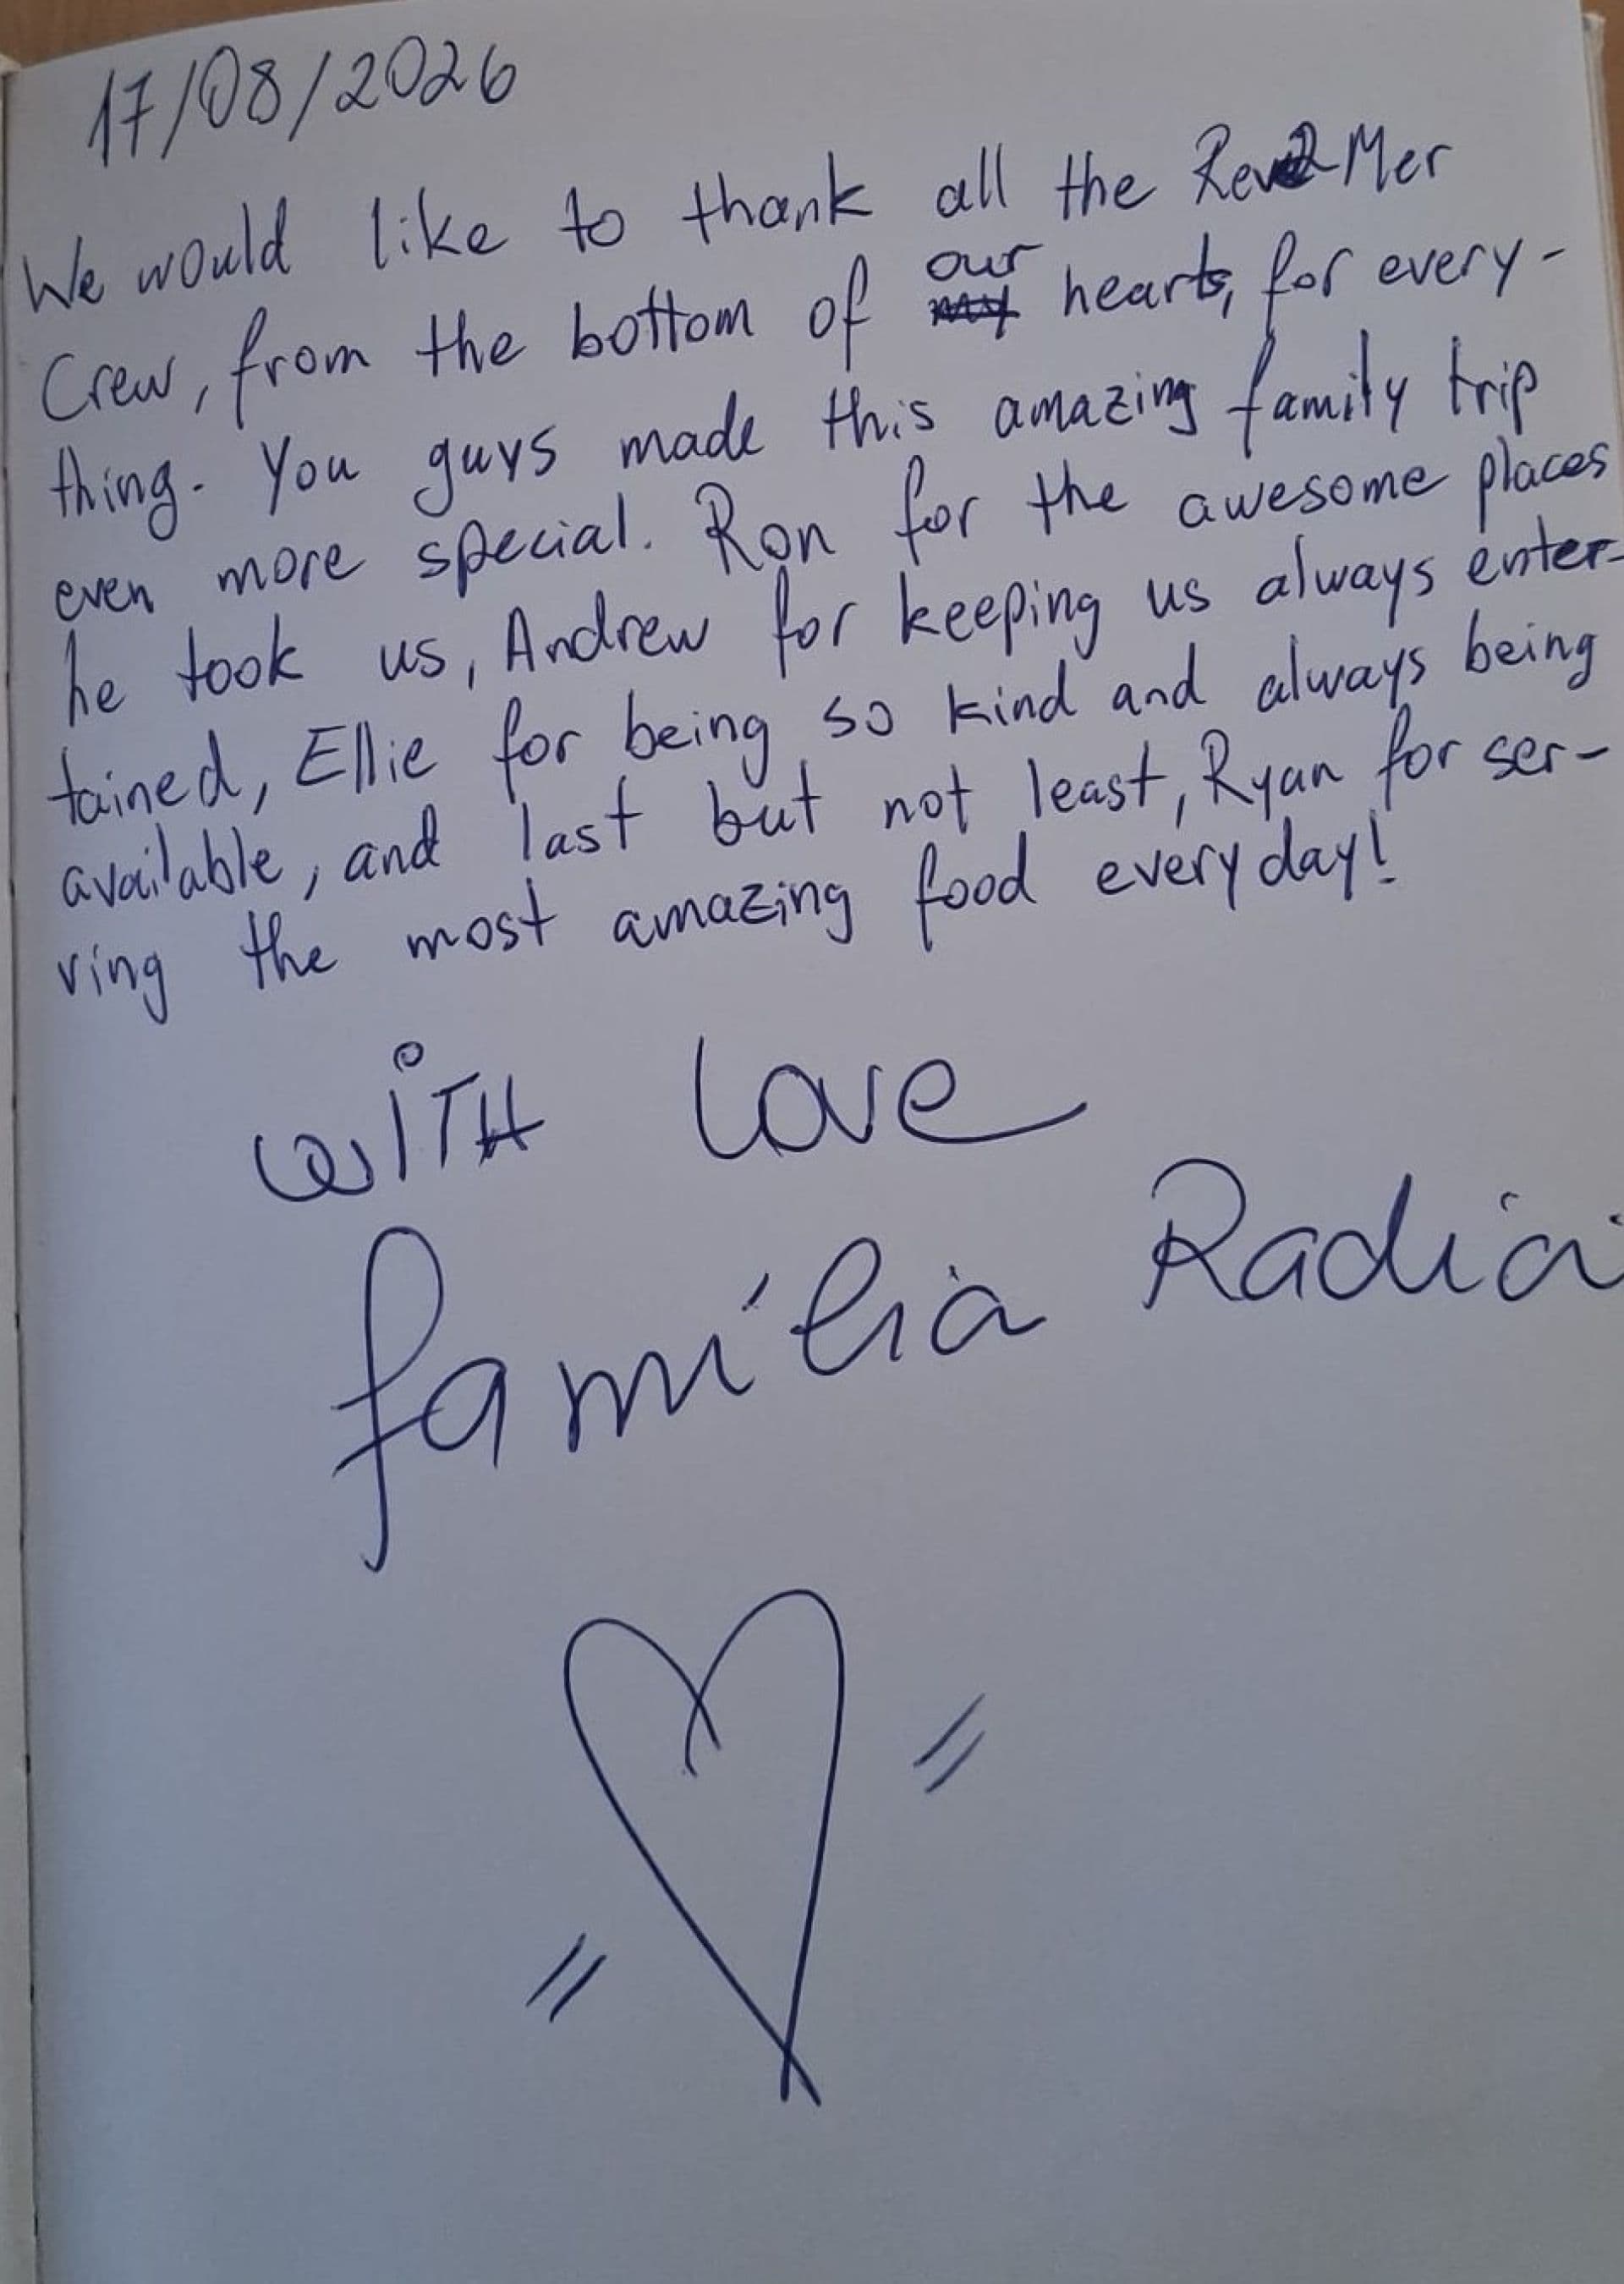 17/08/2026
We would like to thank all the Mer
Crew, from the bottom of our hearts, for every-
thing. You guys made this amazing family trip
even more special. Ron for the awesome places
he took us, Andrew for keeping us always enter-
tained, Ellie for being so kind and always being
available, and last but not least, Ryan for ser-
ving the most amazing food everyday!
WiTH Love
família Radia